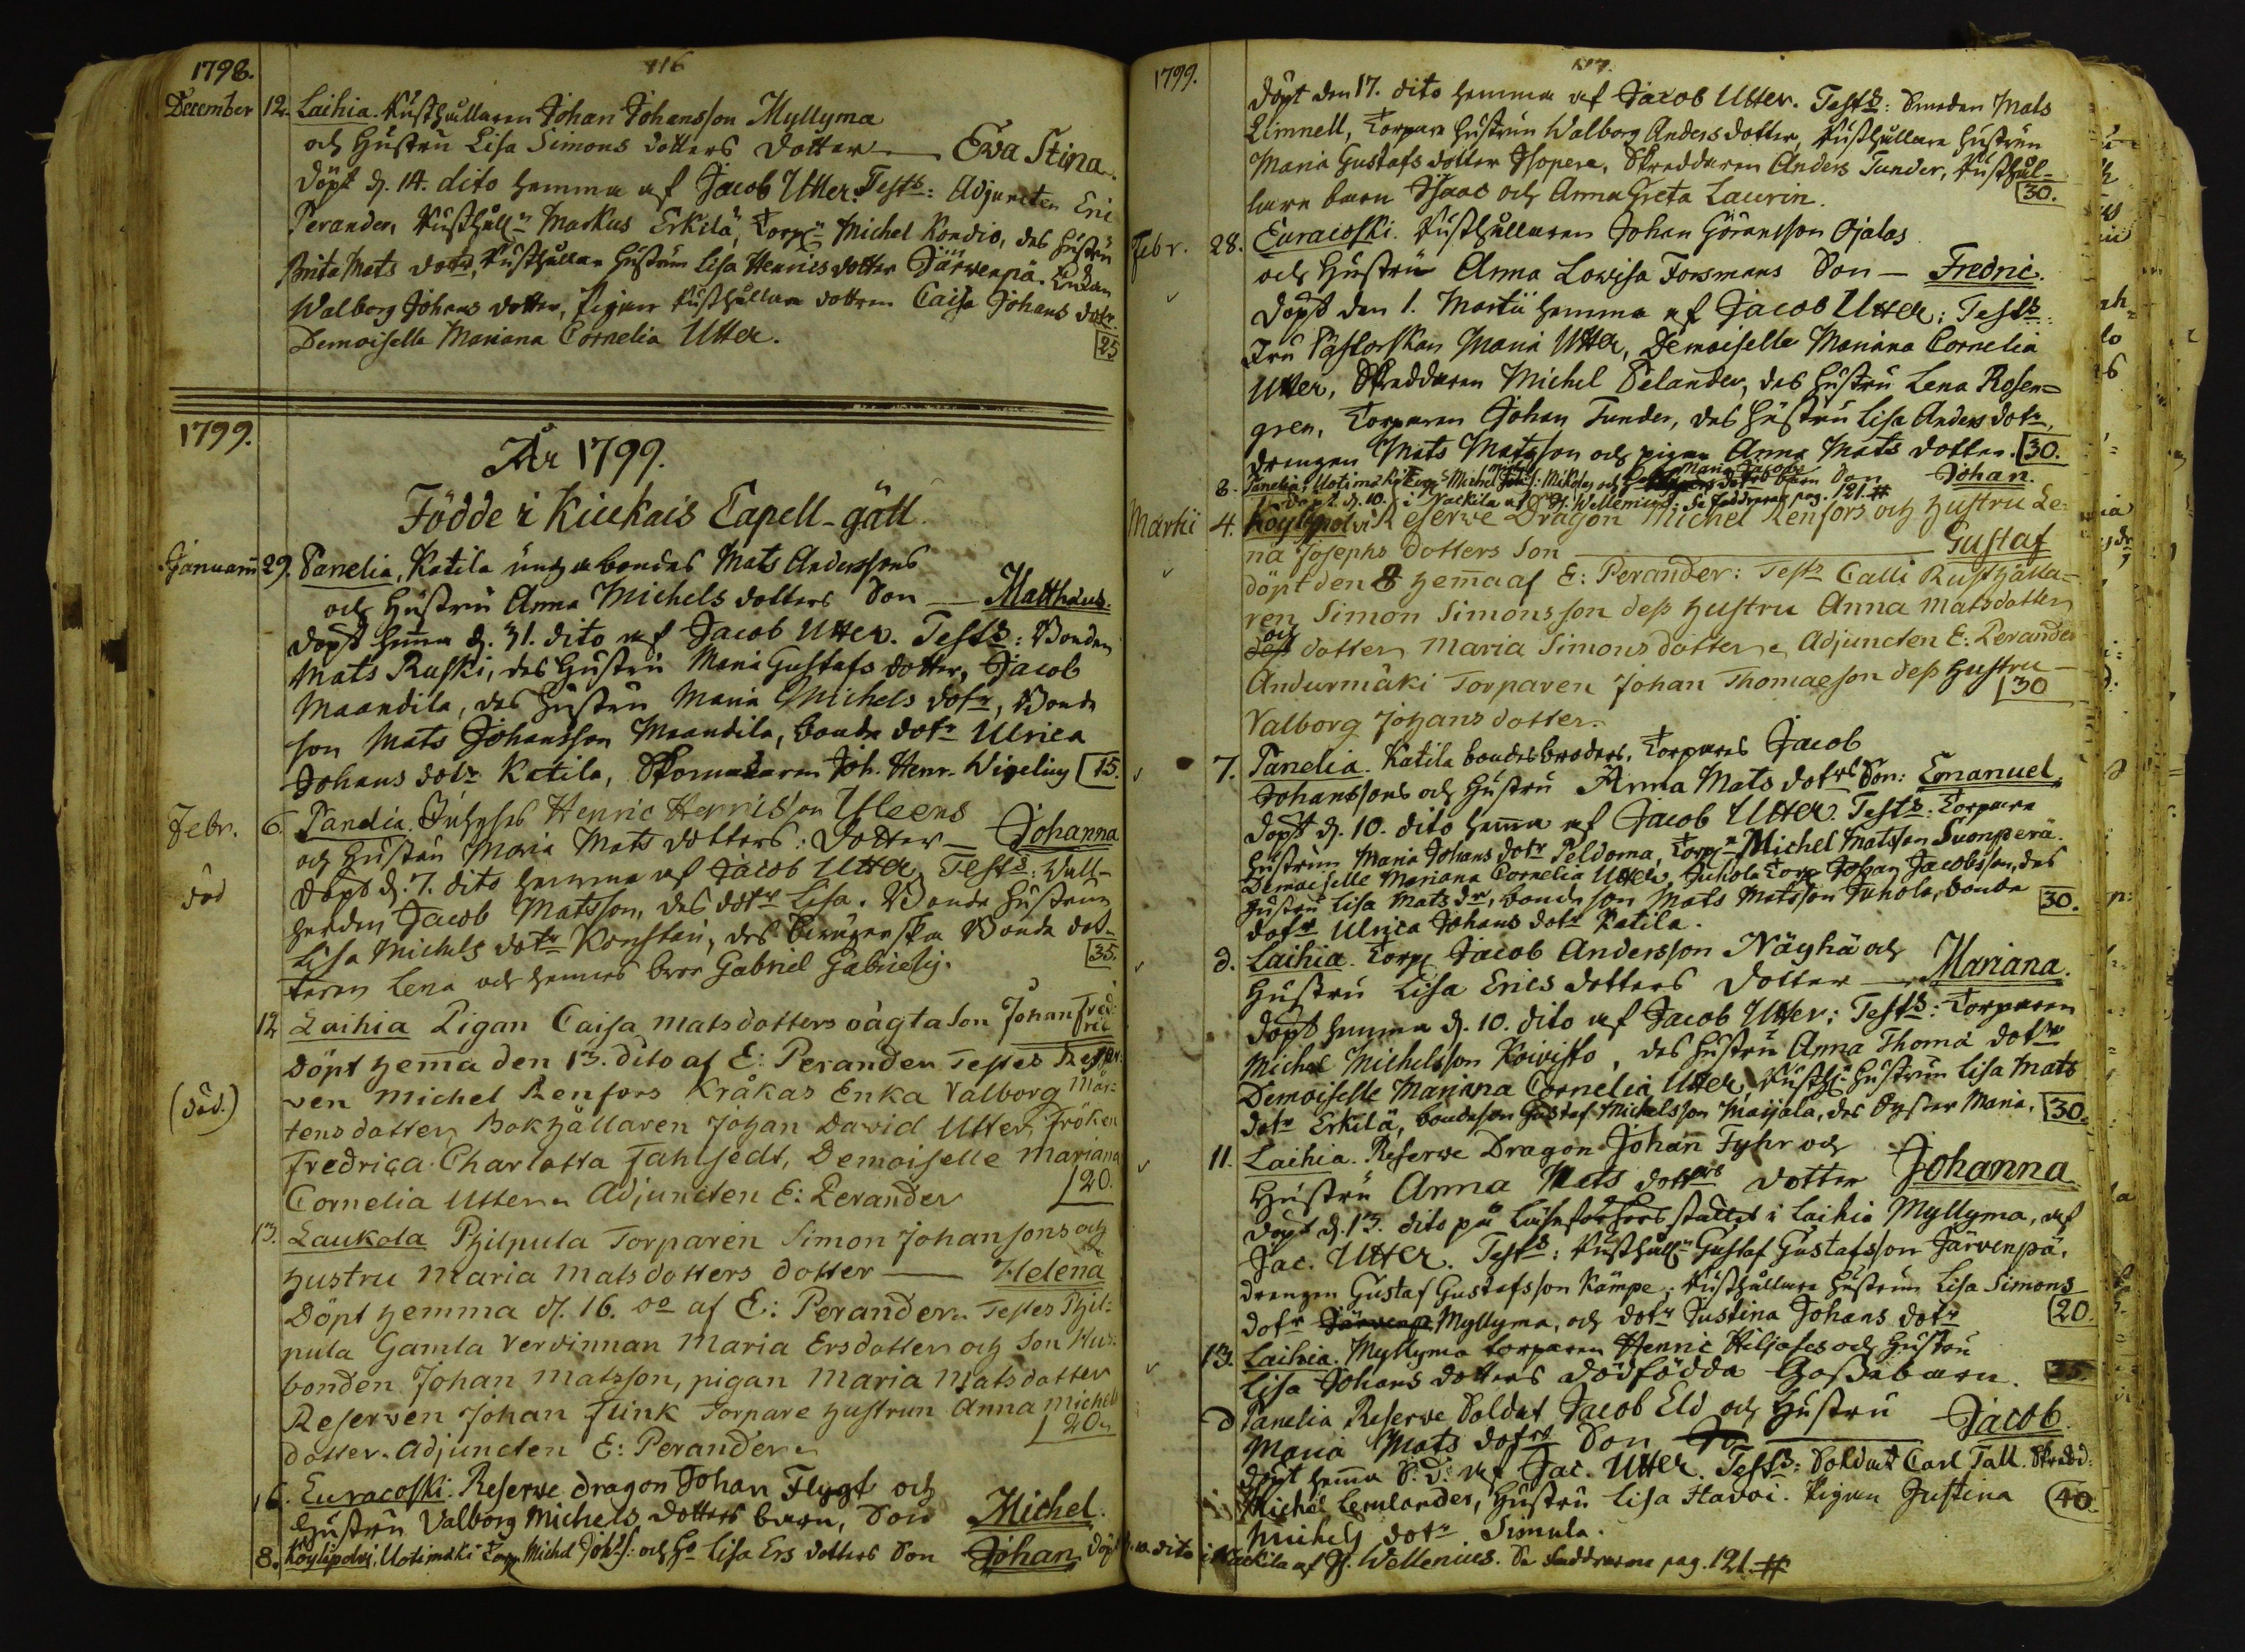 116
1798.
December 12. Laihia. Rusthållaren Johan Johansson Myllyma
och Hustru Lisa Simons dotters dotter — Ewa Stina.
döpt d. 14. dito hemma af Jacob Utter. Tests: Adjuncten Eric
Perander, Rusthåll:n Markus Erkilä, Torp:n Michel Kondio, des Hustru
Brita Mats dotr, Rusthållare Hustrun Lisa Henrics dotter Järwenpä. Enkan
Walborg Johans dotter, pigan Rusthållare dottren Caisa Johans dotr.
Demoiselle Mariana Cornelia Utter. 25
1799.
År 1799.
Födde i Kiukais Capell-gäll.
Januarii 29. Panelia, Katila unga bondes Mats Anderssons
och Hustru Anna Michels dotters Son — Matthæus.
döpt hem̃a d. 31. dito af Jacob Utter. Tests: Bonden
Mats Ruski, des Hustru Maria Gustafs dotter, Jacob
Maandila, des Hustru Maria Michels dotr, Bonde
son Mats Johansson Maandila, bonde dotr Ulrica
Johans dotr Katila, Skomakaren Joh. Henr. Wigelius 15.
Febr. 6. Panelia. Inhyses Henric Henricsson Ylleens
och Hustru Maria Mats dotters: dotter — Johanna
död döpt d. 7. dito hemma af Jacob Utter. Tests: Wall-
herden Jacob Matsson, des dotr Lisa. Bonde Hustrun
Lisa Michels dotr Konstari, des Bonde dot-
teren Lena och hennes bror Gabriel Gabrielss. 35.
12 Laihia Pigan Caisa Matsdotters oägta Son Johan Fred:
ric
döpt hem̃a den 13. dito af E: Perander Testes Reser:
(död.) ven Michel Renfors Kråkas Enka Valborg Mår-
tensdotter, Bokhållaren Johan David Utter, Fröken
Fredrica Charlotta Fahlstedt, Demoiselle Mariana
Cornelia Utter Adjuncten E: Perander 20.
13. Laukola Philpula Torparen Simon Johansons och
hustru Maria Matsdotters dotter — Helena
Döpt hemma d. 16. do af E: Perander. Testes Phil-
pula Gamla Verdinnan Maria Ersdotter och Son Hus-
bonden Johan Matsson, pigan Maria Matsdotter
Reserven Johan Flink Torpare hustrun Anna Michels
dotter. Adjuncten E: Perander 20
16. Euracoski. Reserve dragon Johan Flygt och
Hustru Valborg Michels dotters barn, Son Michel.
8. Köylipolvi. Uotimäki Torp Michel Johss: och Ho Lisa Ers dotters Son Johan, döpt d. 10. dito i Nackila af H. Wellenius. Se faddrarna pag. 121. #
117.
1799.
döpt den 17. dito hemma af Jacob Utter. Tests: Smeden Mats
Limnell, Torpare Hustrun Walborg Anders dotter, Rusthållare Hustrun
Maria Gustafs dotter Isopere, Skreddaren Anders Tunder, Rusthål-
lare barn Isaac och Anna Greta Laurin. 30.
Febr. 28. Euracoski. Rusthållaren Johan Göransson Ojalas
och Hustru Anna Lowisa Forsmans Son — Fredric.
döpt den 1. Martii hemma af Jacob Utter: Tests:
Fru Pastorskan Maria Utter, Demoiselle Mariana Cornelia
Utter, Skreddaren Michel Selander, des Hustru Lena Rosen-
gren, Torparen Johan Tunder, des Hustru Lisa Anders dotr,
drengen Mats Matsson och pigan Anna Mats dotter. 30.
8. Panelia. Uotimäki Torp:n Michel Mikola, och Maria Jacobs barn Son Johan.
döpt d. 10. i Nackila af H. Wellenius. Se faddrarna pag. 121. #
Martii 4. Köylipolvi Reserve Dragon Michel Renfors och hustru Le-
na Josephs dotters Son — Gustaf
döpt den 8 hem̃a af E: Perander: Tests Calli Rusthålla-
ren Simon Simonsson dess hustru Anna Matsdotter
och dotter Maria Simonsdotter, Adjuncten E: Perander
Andurmäki Torparen Johan Thomaeson dess hustru
Valborg Johansdotter. 30
7. Panelia. Katila bondesbroders, Torpares Jacob
Johanssons och Hustru Anna Mats dotrs Son: Emanuel.
döpt d. 10. dito hem̃a af Jacob Utter. Tests: Torpare
Hustrun Maria Johans dotr Peldoma, Torp:n Michel Matsson Suonperä.
Demoiselle Mariana Cornelia Utter, Juhola Torp Johan Jacobsson, des
Hustru Lisa Mats dr, bonde son Mats Matsson Juhola, bonde
dotr Ulrica Johans dotr Katila. 30.
d. Laihia. Torp Jacob Andersson Näyhä och
Hustru Lisa Erics dotters dotter — Mariana.
döpt hemma d. 10. dito af Jacob Utter: Tests: Torparen
Michel Michelsson Koivisto, des Hustru Anna Thomä dotr
Demoiselle Mariana Cornelia Utter, Rusth: Hustrun Lisa Mats
dotr Erkilä, bondeson Gustaf Michelsson Maijala, des Syster Maria. 30.
11. Laihia. Reserve Dragon Johan Fyhr och
Hustru Anna Mats dotters dotter Johanna
döpt d. 13. dito på läseförhörs stället i Laihia Myllyma, af
Jac. Utter. Tests: Rusthåll:n Gustaf Gustafsson Järvenpä,
drengen Gustaf Gustafsson Kämpe, Rusthållare Hustrun Lisa Simons
dotr Myllyma, och dotr Justina Johans dotr 20.
13. Laihia. Myllyma torparen Henric Hiljases och Hustru
Lisa Johans dotters dödfödda Gossebarn. 35.
d Panelia Reserve Soldat Jacob Eld och Hustru
Maria Mats dotrs Son — Jacob.
döpt hem̃a S. D. af Jac. Utter. Tests: Soldat Carl Tall. Skredd:
Michel Lernlander, Hustru Lisa Stavoi. Pigan Justina
Michels dotr Simula. 40.